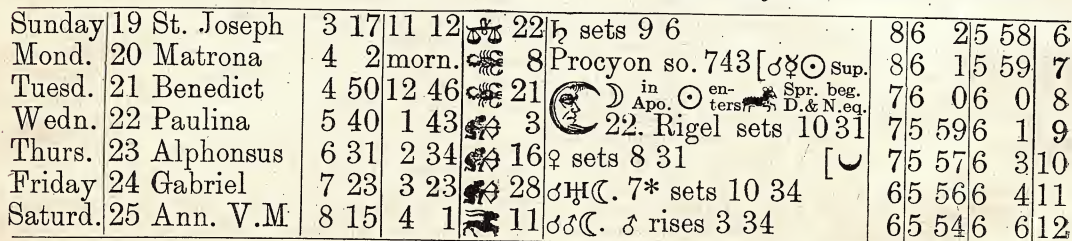 Sunday 19 St. Joseph 3 17 11 12 ♎ 22 ♄ sets 9 6 8 6 2 5 58 6
Mond. 20 Matrona 4 2 morn. 8 Procyon so. 7 43 [☌☿☉ Sup. 8 6 1 5 59 7
Tuesd. 21 Benedict 4 50 12 46 21 ☽ in Apo. ☉ enters Spr. beg. D. & N. eq. 7 6 0 6 0 8
Wedn. 22 Paulina 5 40 1 43 3 22. Rigel sets 10 31 7 5 59 6 1 9
Thurs. 23 Alphonsus 6 31 2 34 16 ♀ sets 8 31 [ 7 5 57 6 3 10
Friday 24 Gabriel 7 23 3 23 28 ☌♅☾. 7* sets 10 34 6 5 56 6 4 11
Saturd. 25 Ann. V.M 8 15 4 1 11 ☌♂☾. ♂ rises 3 34 6 5 54 6 6 12